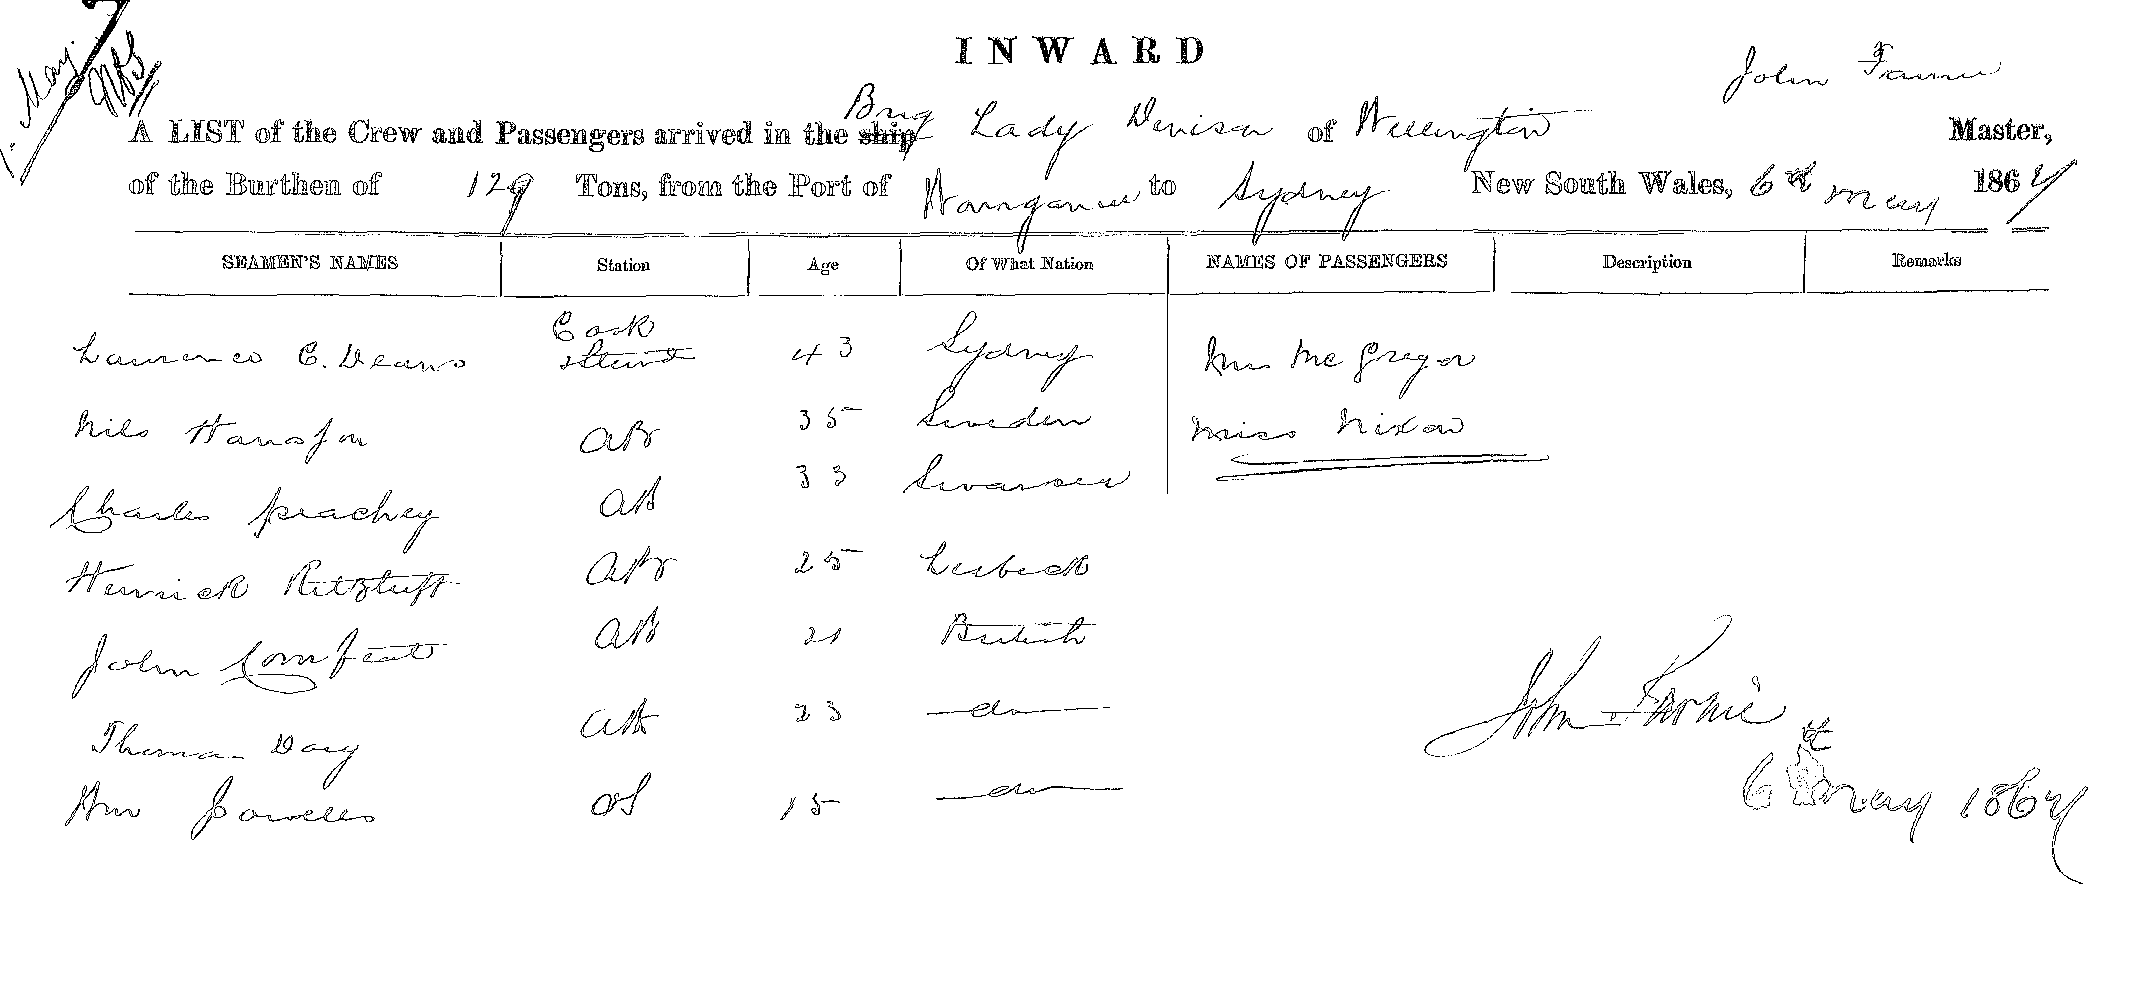 May
INWARD
John Farnie
A LIST of the Crew and Passengers arrived in the ship Brig Lady Denison of Wellington Master,
of the Burthen of 129 Tons, from the Port of Wanganui to Sydney New South Wales, 6th May 1864
SEAMEN'S NAMES Station Age Of What Nation NAMES OF PASSENGERS Description Remarks
Cook
Laurence C. Deans Steward 43 Sydney Mrs McGregor
Nils Hansson AB 35 Sweden Miss Nixon
Charles Peachey AB 33 Swansea
Henrick AB 25 Lubeck
John Comfeat AB 21 British
Thomas Davy AB 23 do
Wm Powells OS 15 do
John Farnie
6th May 1864